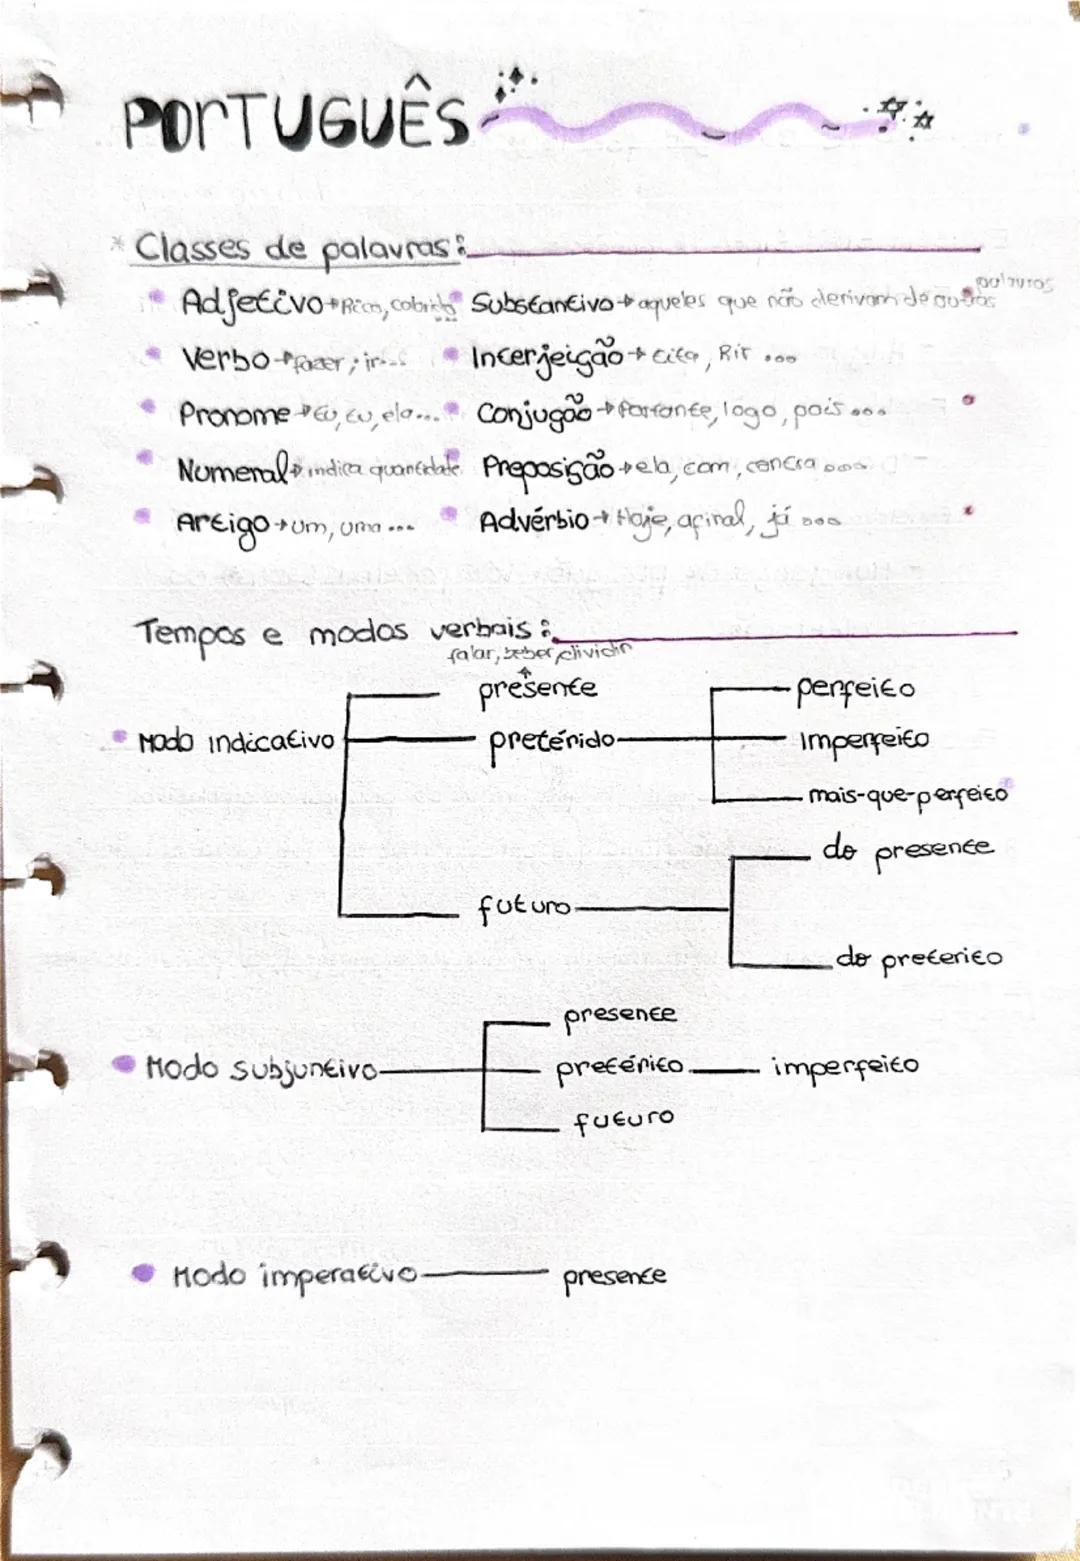 PORTUGUÊS
* Classes de palavras:
Adjetivo → Rico, Substantivo → aqueles que não derivam de outros
outuros
Verbo → fazer, ir... Interjeição → Rir ...
Pronome → Eu, Eu, ela... Conjugão → Portante, logo, pois ...
Numeral → indica quantidate Preposição → ela, com, contra ...
Artigo → um, uma ... Advérbio → Hoje, afinal, já ...
Tempos e modos verbais:
falar, beber, dividir
presente perfeito
Modo indicativo pretérido imperfeito
mais-que-perfeito
do presente
futuro
do preterito
presente
Modo subjuntivo pretérito imperfeito
futuro
Modo imperativo presente